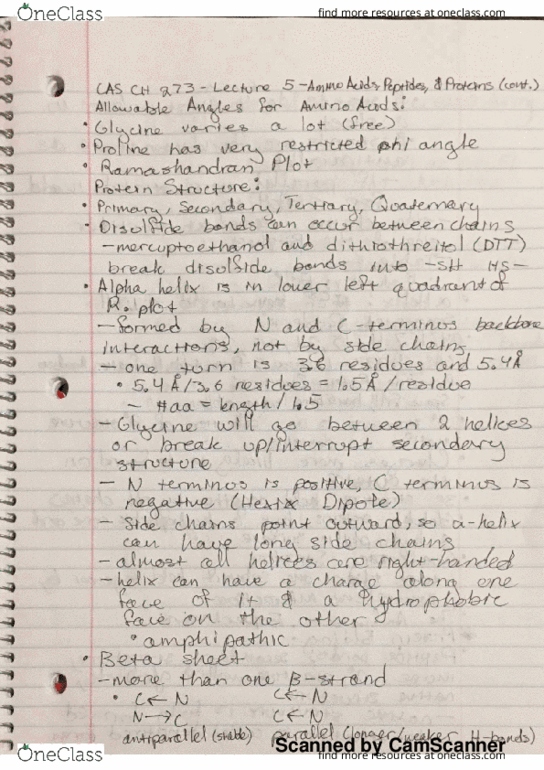 OneClass
find more resources at oneclass.com
CAS CH 273 - Lecture 5 - Amino Acids, Peptides, & Proteins (cont.)
Allowable Angles for Amino Acids:
• Glycine varies a lot (free)
• Proline has very restricted phi angle
• Ramashandran Plot
Protein Structure:
• Primary, Secondary, Tertiary, Quaternary
• Disulfide bonds can occur between chains
- mercuptoethanol and dithiothreitol (DTT)
break disulfide bonds into -SH HS-
• Alpha helix is in lower left quadrant of
R. plot
- formed by N and C-terminus backbone
interactions, not by side chains
- one turn is 3.6 residues and 5.4Å
• 5.4Å/3.6 residues = 1.5Å/residue
- #aa = length/1.5
- Glycine will go between 2 helices
or break up/interrupt secondary
structure
- N terminus is positive, C terminus is
negative (Helix Dipole)
- Side chains point outward, so α-helix
can have long side chains
- almost all helices are right-handed
- helix can have a charge along one
face of it & a hydrophobic
face on the other
• amphipathic
• Beta sheet
- more than one β-strand
• C←N C←N
N→C C←N
antiparallel (stable) parallel (longer/weaker H-bonds)
Scanned by CamScanner
OneClass
find more resources at oneclass.com